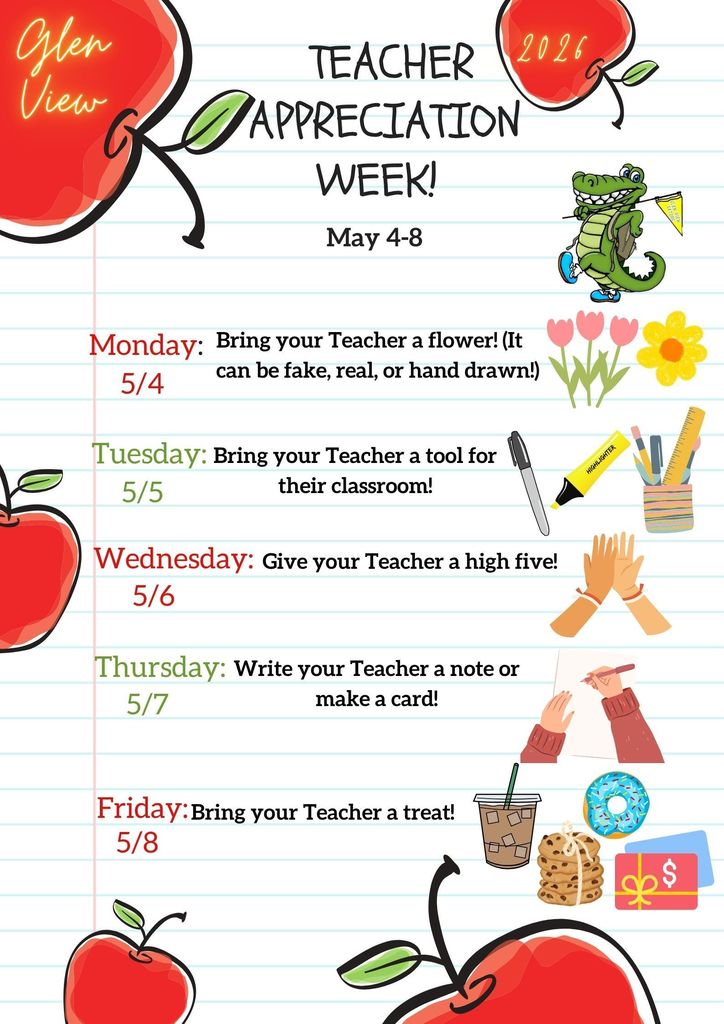 Glen
View
2026
TEACHER
APPRECIATION
WEEK!
May 4-8
Monday: Bring your Teacher a flower! (It
can be fake, real, or hand drawn!)
5/4
Tuesday: Bring your Teacher a tool for
their classroom!
5/5
HIGHLIGHTER
Wednesday: Give your Teacher a high five!
5/6
Thursday: Write your Teacher a note or
make a card!
5/7
Friday: Bring your Teacher a treat!
5/8
$